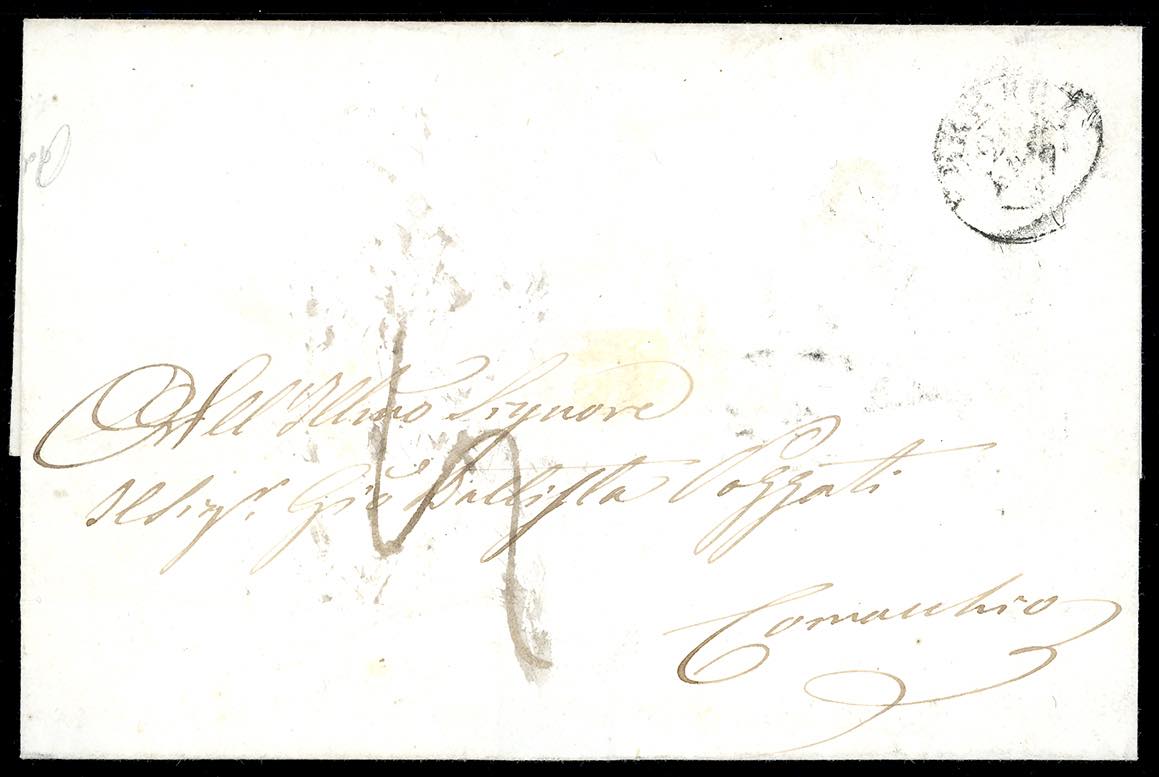 All' Illmo Signore
Il Sigr. Gio Battista Poggati
Comacchio